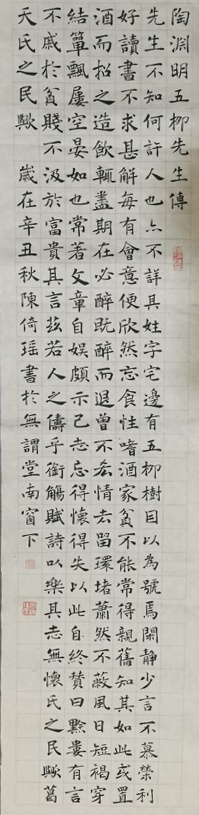 陶淵明五柳先生傳
先生不知何許人也亦不詳其姓字宅邊有五柳樹因以為號焉閑靜少言不慕榮利
好讀書不求甚解每有會意便欣然忘食性嗜酒家貧不能常得親舊知其如此或置
酒而招之造飲輒盡期在必醉既醉而退曾不吝情去留環堵蕭然不蔽風日短褐穿
結簞瓢屢空晏如也常著文章自娛頗示己志忘得懷得失以此自終贊曰黔婁有言
不戚於貧賤不汲於富貴其言茲若人之儔乎銜觴賦詩以樂其志無懷氏之民歟葛
天氏之民歟 歲在辛丑秋陳倚瑤書於無謂堂南窗下